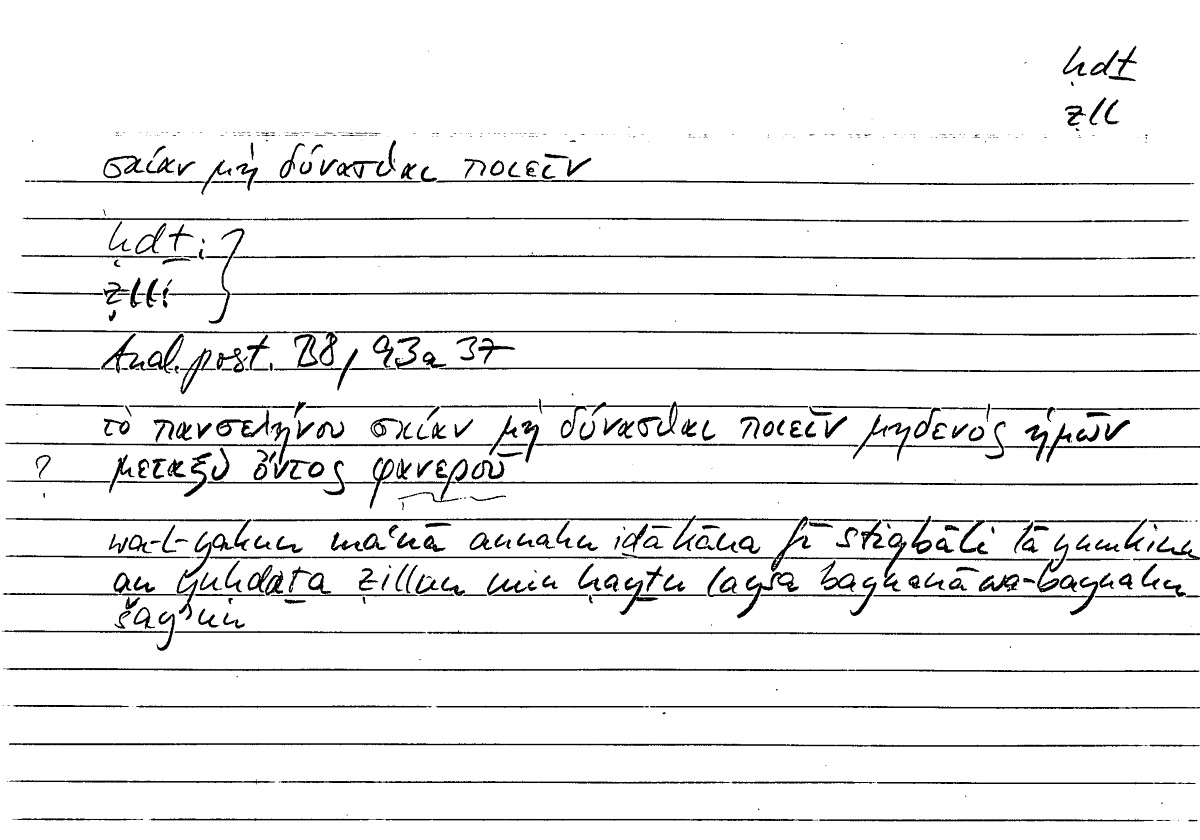 ḥdṯ
ẓll
σκίαν μὴ δύνασθαι ποιεῖν
ḥdṯ:
ẓll:
Anal. post. B8, 93a 37
τὸ πανσελήνου σκίαν μὴ δύνασθαι ποιεῖν μηδενός ἡμῶν
? μεταξὺ ὄντος φανεροῦ
wa-l-yakun maʿnā annahu iḏā kāna fī stiqbāli lā yumkinu
an yuḥdaṯa ẓillun min ḥayṯu laysa baynanā wa-baynahu
šayʾun